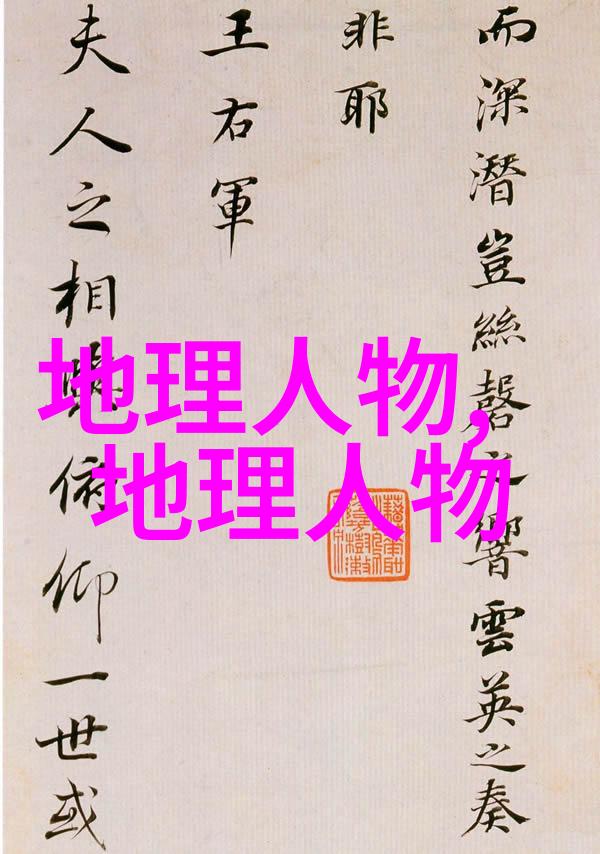 而深潛豈絲磬之響雲英之奏
非耶
王右軍
夫人之相與俯仰一世或
地理人物,
地理人物